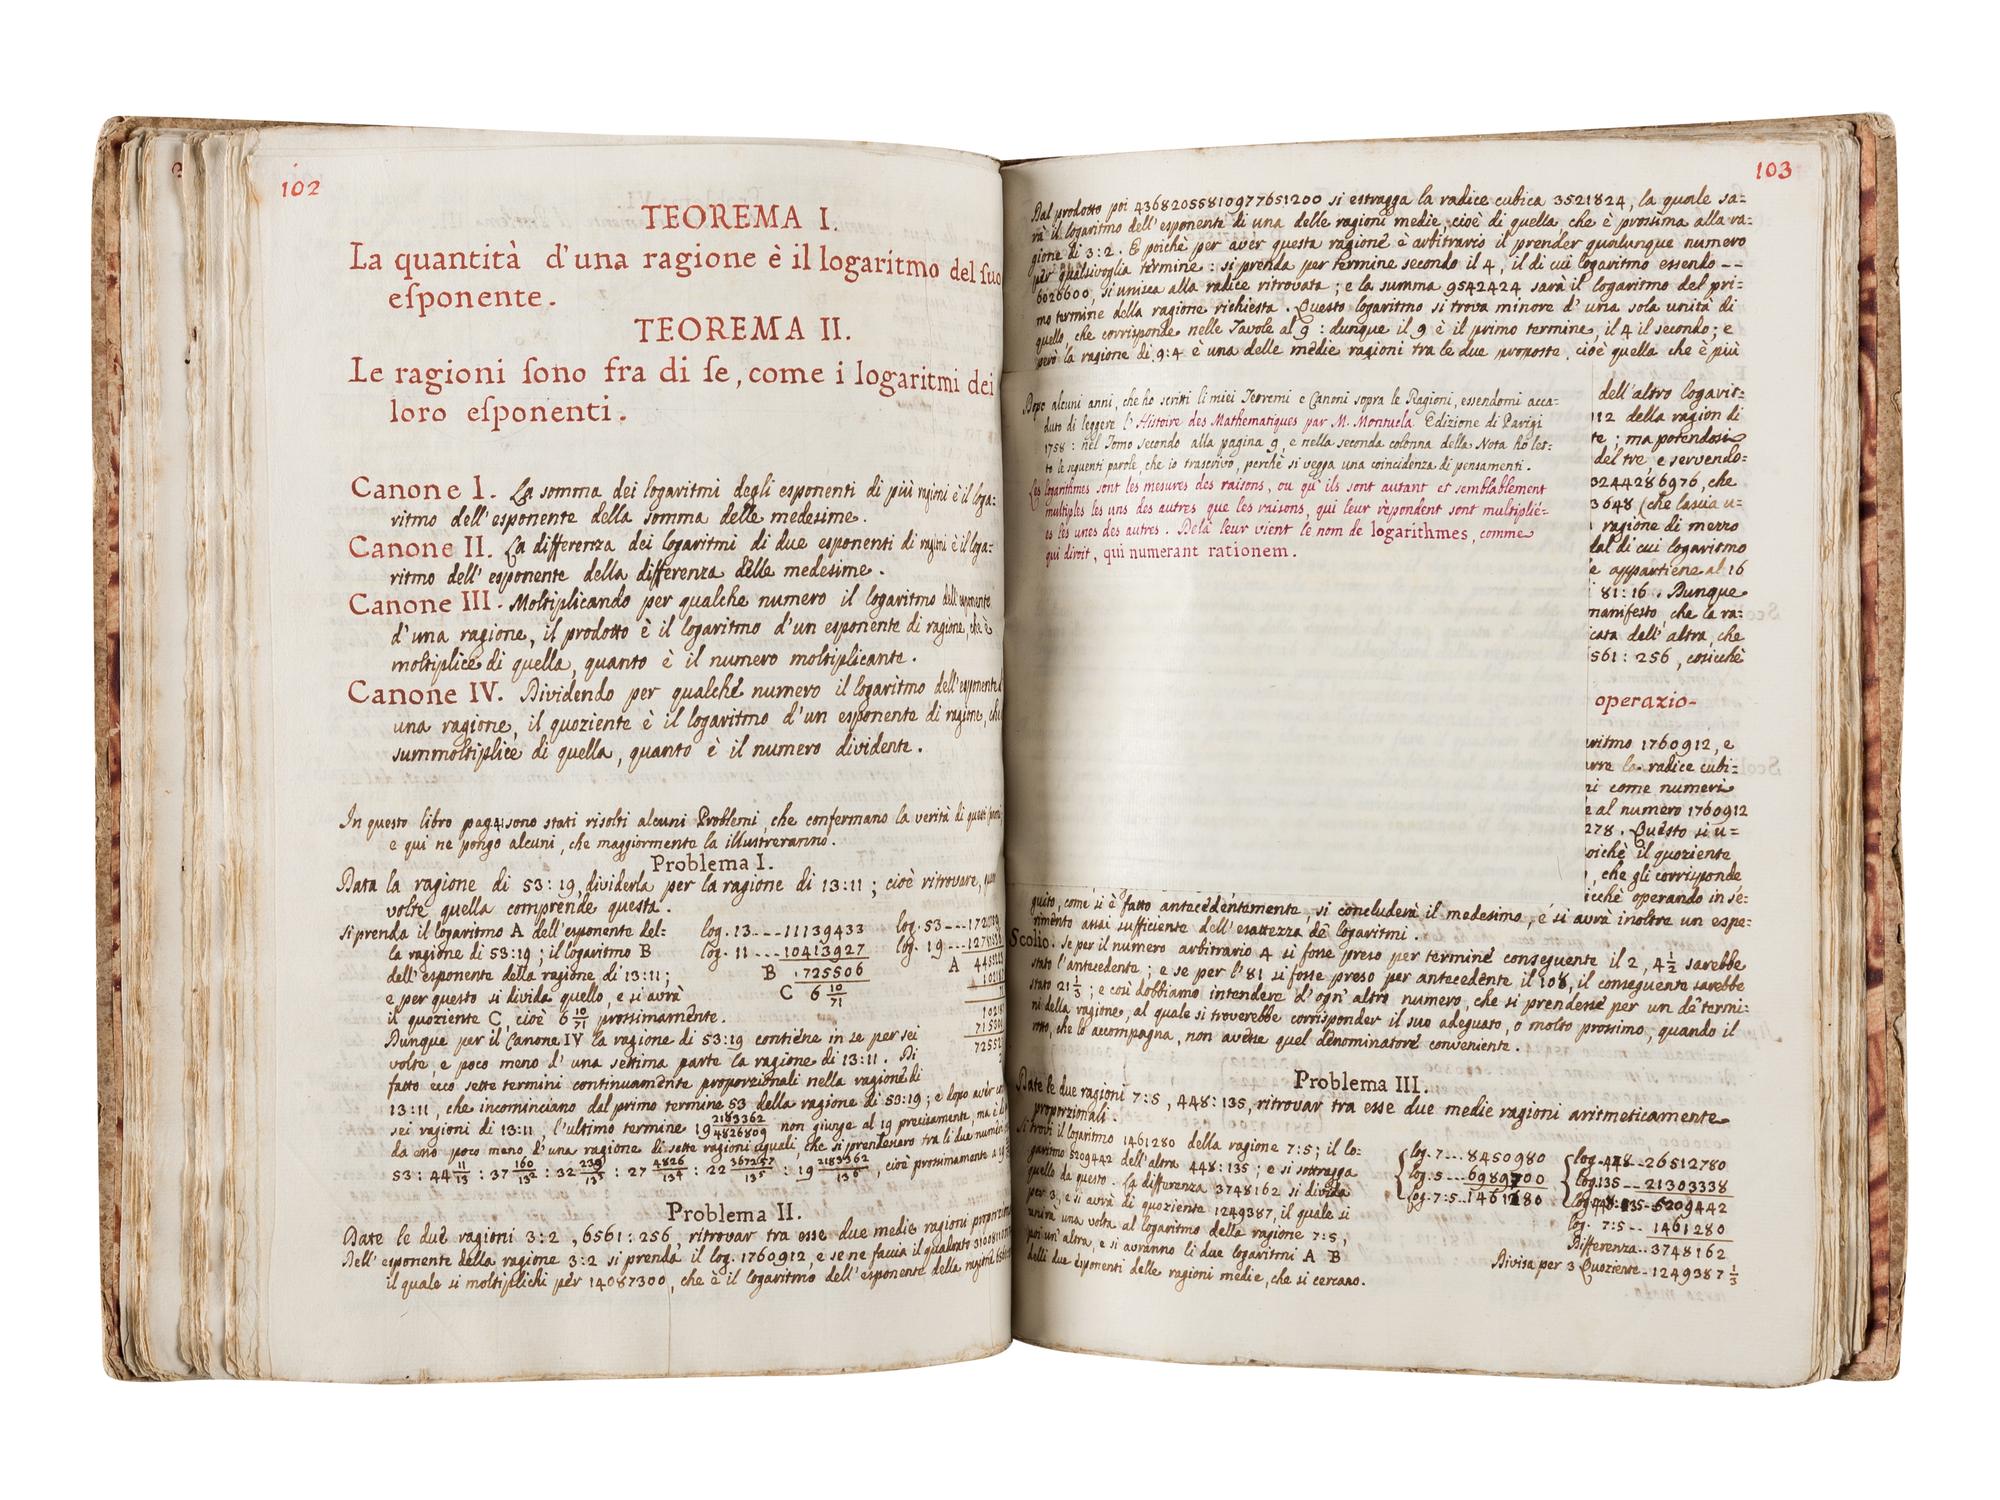 102
TEOREMA I.
La quantità d'una ragione è il logaritmo del ſuo
eſponente.
TEOREMA II.
Le ragioni ſono fra di ſe, come i logaritmi dei
loro eſponenti.
Canone I. La somma dei logaritmi degli esponenti di più ragioni è il loga=
ritmo dell'esponente della somma delle medesime.
Canone II. La differenza dei logaritmi di due esponenti di ragioni è il loga=
ritmo dell'esponente della differenza delle medesime.
Canone III. Moltiplicando per qualche numero il logaritmo dell'esponente
d'una ragione, il prodotto è il logaritmo d'un esponente di ragione, che è
moltiplice di quella, quanto è il numero moltiplicante.
Canone IV. Dividendo per qualche numero il logaritmo dell'esponente
una ragione, il quoziente è il logaritmo d'un esponente di ragione, che
summoltiplice di quella, quanto è il numero dividente.
In questo libro pag. sono stati risolti alcuni Problemi, che confermano la verità di questi
e qui ne pongo alcuni, che maggiormente la illustreranno.
Problema I.
Data la ragione di 53:19, dividerla per la ragione di 13:11; cioè ritrovare,
volte quella comprende questa.
si prenda il logaritmo A dell'esponente del=
la ragione di 53:19; il logaritmo B
dell'esponente della ragione di 13:11;
e per questo si divida quello, e si avrà
il quoziente C, cioè 6 10/71 prossimamente.
log. 13---11139433
log. 11---10413927
B 725506
C 6 10/71
log. 53---
log. 19---
A
Dunque per il Canone IV la ragione di 53:19 contiene in se per sei
volte, e poco meno d'una settima parte la ragione di 13:11. Di
fatto ecco sette termini continuamente proporzionali nella ragione di
13:11, che incominciano dal primo termine 53 della ragione di 53:19; e dopo aver
sei ragioni di 13:11, l'ultimo termine 19 2183362/4826809 non giunge al 19 precisamente, ma è
da eno poco meno d'una ragione di sette ragioni eguali, che si prendessero tra li due numeri
53:44 11/13 : 37 160/13² : 32 239/13³ : 27 4826/13⁴ : 22 367257/13⁵ : 19 2183362/13⁶, cioè prossimamente a 19
Problema II.
Date le due ragioni 3:2, 6561:256, ritrovar tra esse due medie ragioni
Dell'esponente della ragione 3:2 si prenda il log. 1760912, e se ne faccia il quadrato
il quale si moltiplichi per 14087300, che è il logaritmo dell'esponente della ragione
103
Dal prodotto poi 43682055810977651200 si estragga la radice cubica 3521824, la quale sa=
rà il logaritmo dell'esponente di una delle ragioni medie, cioè di quella, che è prossima alla ra=
gione di 3:2. E poichè per aver questa ragione è arbitrario il prender qualunque numero
per qualsivoglia termine: si prenda per termine secondo il 4, il di cui logaritmo essendo --
6020600, si unisca alla radice ritrovata; e la summa 9542424 sarà il logaritmo del pri=
mo termine della ragione richiesta. Questo logaritmo si trova minore d'una sola unità di
quello che corrisponde nelle Tavole al 9: dunque il 9 è il primo termine, il 4 il secondo; e
però la ragione di 9:4 è una delle medie ragioni tra le due proposte, cioè quella che è più
Dopo alcuni anni, che ho scritti li miei Teoremi e Canoni sopra le Ragioni, essendomi acca=
duto di leggere l'Histoire des Mathematiques par M. Montucla Edizione di Parigi
1758: nel Tomo secondo alla pagina 9, e nella seconda colonna della Nota ho let=
to le seguenti parole, che io trascrivo, perchè si vegga una coincidenza di pensamenti.
Les logarithmes sont les mesures des raisons, ou qu'ils sont autant et semblablement
multiples les uns des autres que les raisons, qui leur repondent sont multipliè=
es les unes des autres. Delà leur vient le nom de logarithmes, comme
qui diroit, qui numerant rationem.
dell'altro logarit=
112 della ragion di
te; ma potendosi
del tre, e servendo=
3244286976, che
3648 (che lascia u=
ragione di mezzo
dal di cui logaritmo
e appartiene al 16
81:16. Dunque
manifesto che la ra=
cata dell'altra, che
561:256, cosicchè
operazio-
aritmo 1760912, e
arre la radice cubi=
ni come numeri
e al numero 1760912
278. Questo si u=
oichè il quoziente
, che gli corrisponde
icchè operando in se=
guito, come si è fatto antecedentemente, si concluderà il medesimo, e si avrà inoltre un espe=
rimento assai sufficiente dell'esattezza de logaritmi.
Scolio. Se per il numero arbitrario 4 si fosse preso per termine conseguente il 2, 4 1/2 sarebbe
stato l'antecedente; e se per l'81 si fosse preso per antecedente il 108, il conseguente sarebbe
stato 21 1/3; e così dobbiamo intendere d'ogn'altro numero, che si prendesse per un de termi=
ni della ragione, al quale si troverebbe corrisponder il suo adeguato, o molto prossimo, quando il
rotto, che lo accompagna, non avesse quel denominatore conveniente.
Problema III.
Date le due ragioni 7:5, 448:135, ritrovar tra esse due medie ragioni aritmeticamente
proporzionali.
Si trovi il logaritmo 1461280 della ragione 7:5; il lo=
garitmo 5209442 dell'altra 448:135; e si sottragga
quello da questo. La differenza 3748162 si divida
per 3, e si avrà di quoziente 1249387, il quale si
unirà una volta al logaritmo della ragione 7:5,
poi un'altra, e si avranno li due logaritmi A B
delli due esponenti delle ragioni medie, che si cercano.
log. 7---8450980
log. 5---6989700
log. 7:5..1461280
log. 448--26512780
log. 135--21303338
log. 448:135-5209442
log. 7:5--1461280
Differenza..3748162
Divisa per 3 Quoziente-1249387 1/3